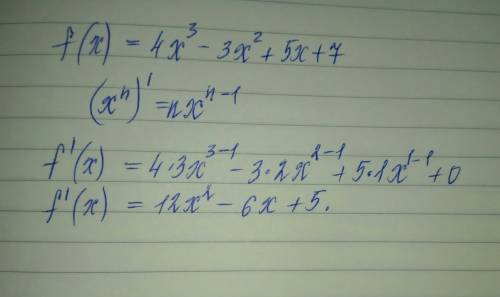 f(x) = 4x³ - 3x² + 5x + 7
(xⁿ)' = nxⁿ⁻¹
f'(x) = 4·3x³⁻¹ - 3·2x²⁻¹ + 5·1x¹⁻¹ + 0
f'(x) = 12x² - 6x + 5.